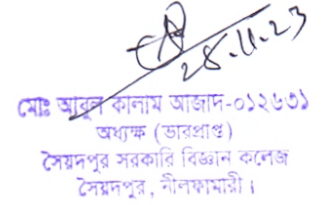 ২৮.১১.২৩
মোঃ আবুল কালাম আজাদ-০১২৬৩১
অধ্যক্ষ (ভারপ্রাপ্ত)
সৈয়দপুর সরকারি বিজ্ঞান কলেজ
সৈয়দপুর, নীলফামারী।